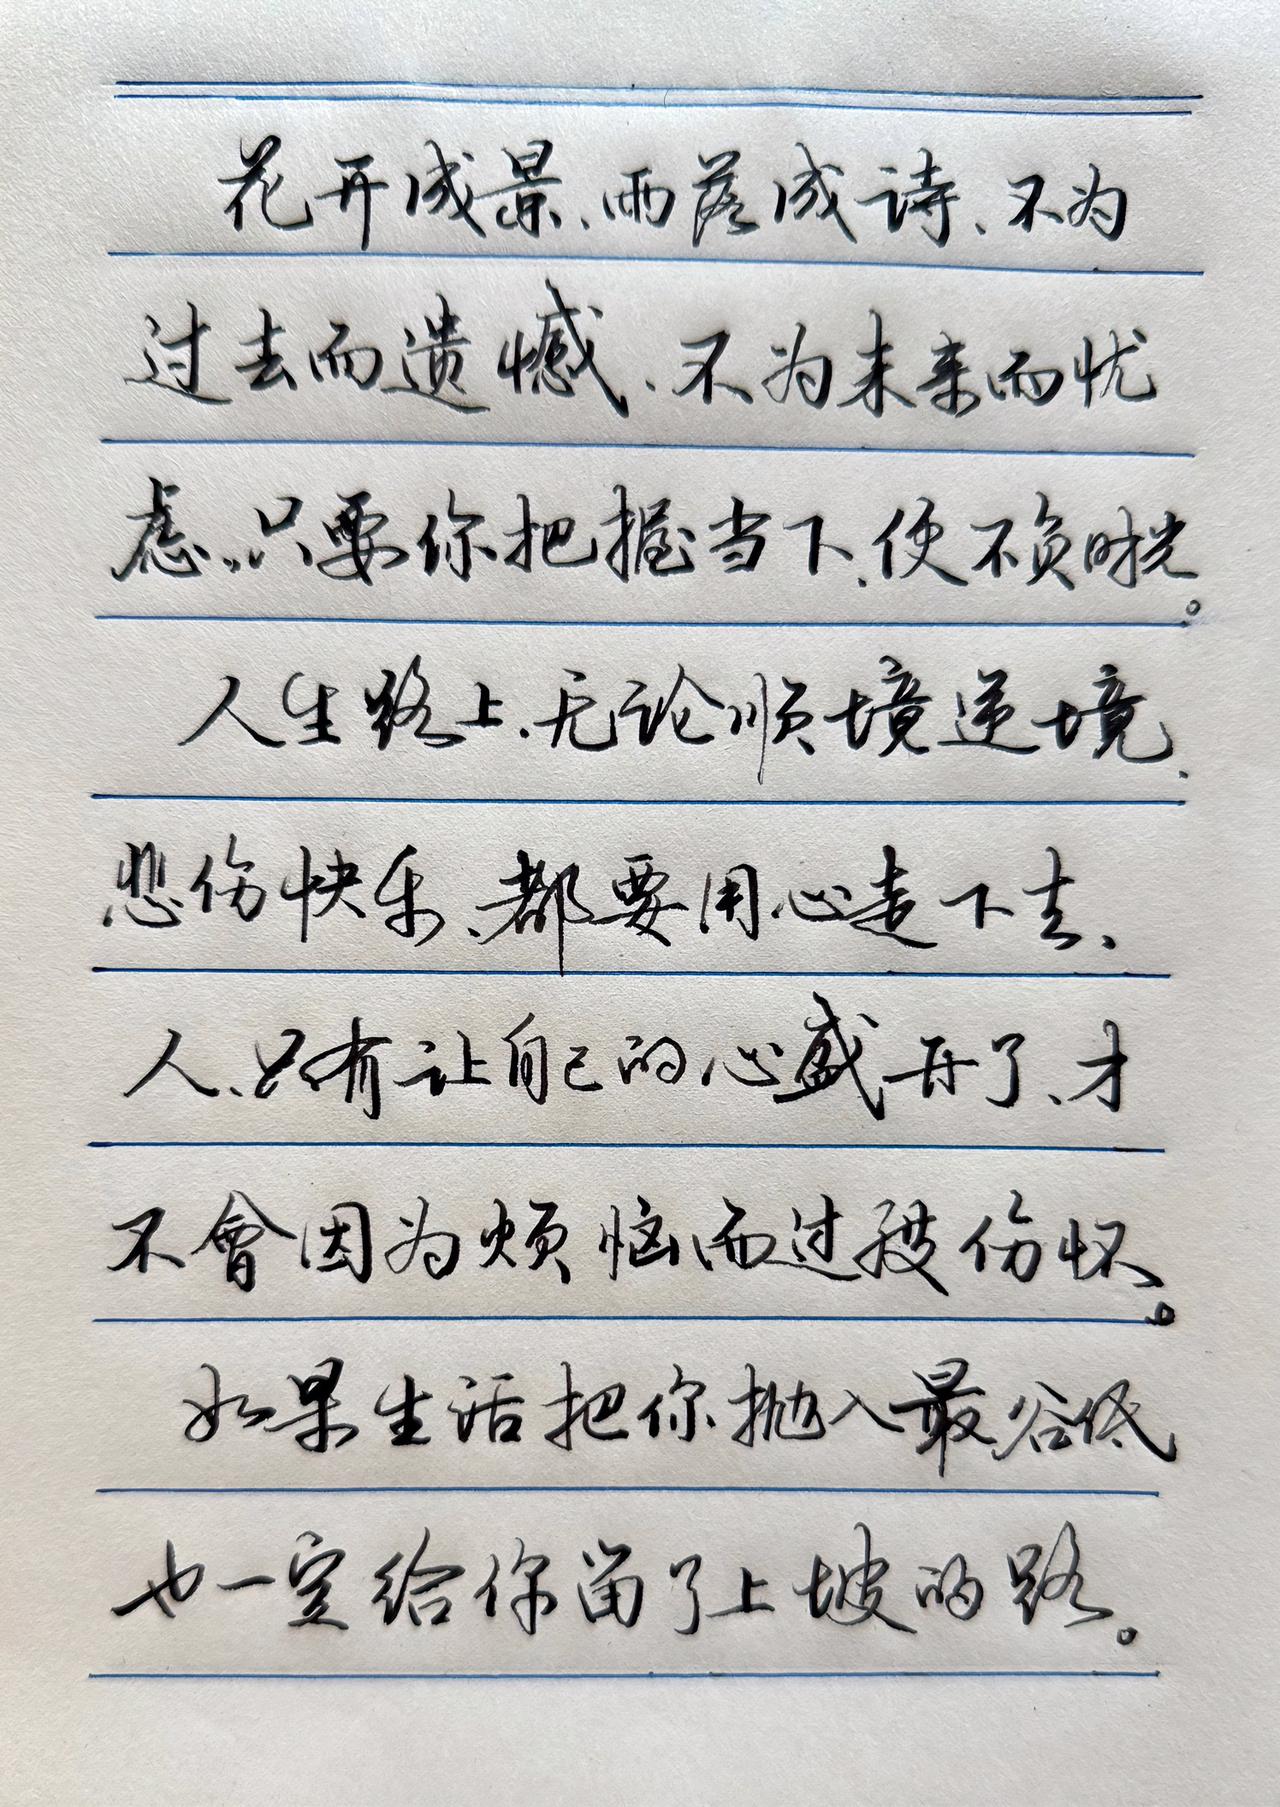 花开成景、雨落成诗、不为
过去而遗憾、不为未来而忧
虑、只要你把握当下、便不负时光。
人生路上、无论顺境逆境、
悲伤快乐、都要用心走下去、
人、只有让自己的心盛开了、才
不會因为烦恼而过度伤怀。
如果生活把你抛入最谷低
也一定给你留了上坡的路。